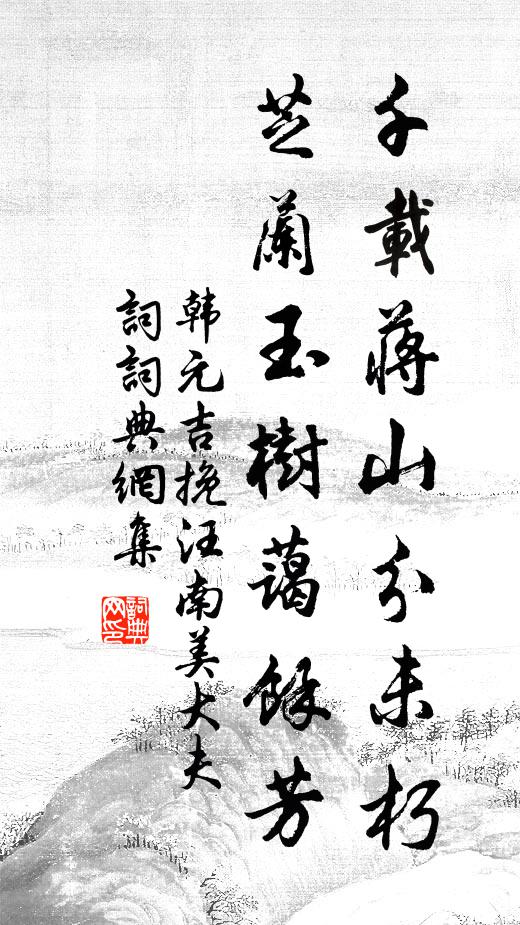 千載蔣山分未朽
芝蘭玉樹藹餘芳
韩元吉挽汪南美大夫
詞詞典網集
詞典
网印